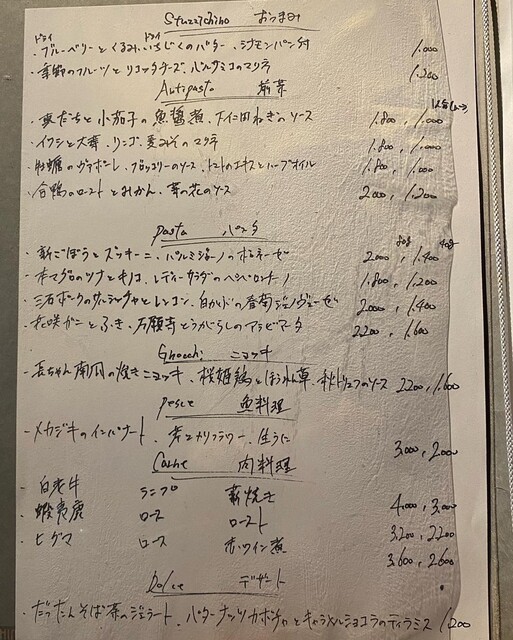 Stuzzichino おつまみ
ドライ ドライ
・ブルーベリーとくるみ、いちじくのバター、シナモンパン付 1.000
・季節のフルーツとリコッタチーズ、バルサミコのマリネ 1.200
Antipasto 前菜
1人分(ハーフ)
・真だちと小茄子の魚醤煮、下仁田ねぎのソース 1.800, 1.000
・イワシと大葉、リンゴ、麦みそのマリネ 1.800, 1.000
・牡蠣のヴァポーレ、ブロッコリーのソース、トマトのエキスとハーブオイル 1.800, 1.000
・合鴨のローストとみかん、菜の花のソース 2.000, 1.200
Pasta パスタ
80g 40g
・新ごぼうとズッキーニ、パルミジャーノのボロネーゼ 2.000, 1.400
・本マグロのツナとキノコ、レディーサラダのペペロンチーノ 1.800, 1.200
・三元ポークのサルシッチャとレンコン、白かぶの春菊ジェノヴェーゼ 2.000, 1.400
・花咲がにとふき、万願寺とうがらしのアラビアータ 2.200, 1.600
Gnocchi ニョッキ
・長ちゃん南瓜の焼きニョッキ、桜姫鶏とほうれん草、秋トリュフのソース 2.200, 1.600
Pesce 魚料理
・メカジキのインパナート、カリフラワー、生うに 3.000, 2.000
Carne 肉料理
白老牛 ランプ 薪焼き 4.000, 3.000
蝦夷鹿 ロース ロースト 3.200, 2.200
ヒグマ ロース 赤ワイン煮 3.600, 2.600
Dolce デザート
・だったんそば茶のジェラート、バターナッツカボチャとキャラメルショコラのティラミス 1.200